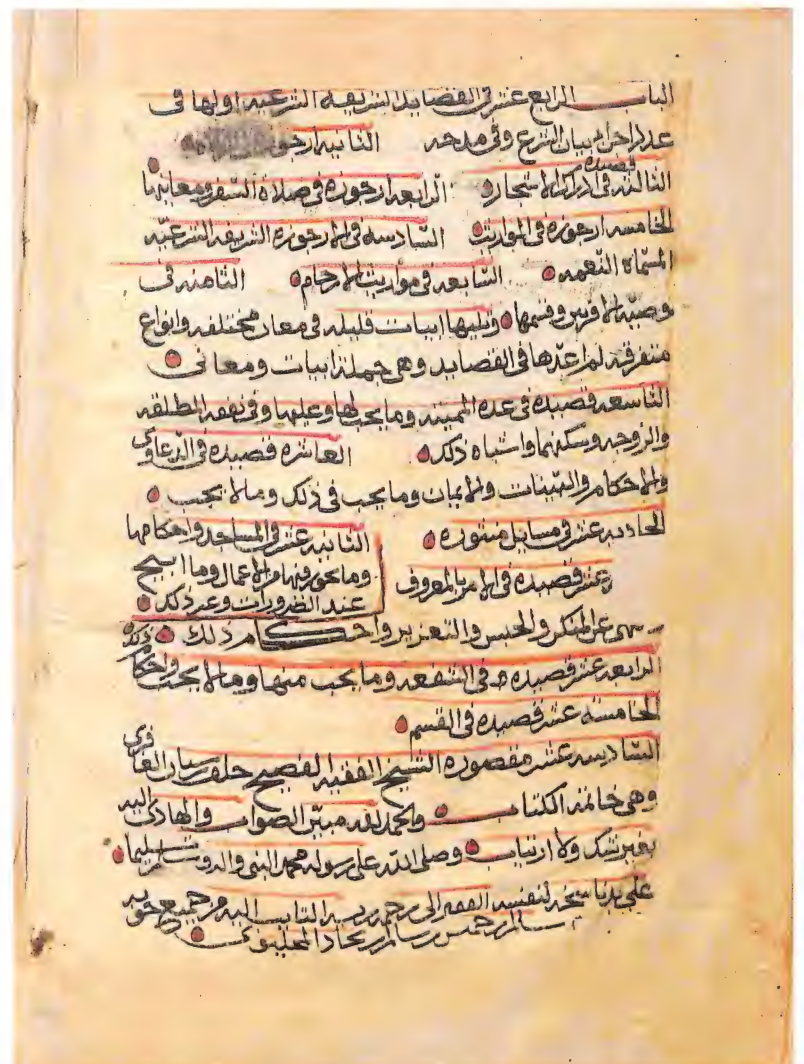 الباب الرابع عشر في القصايد الشريفه الشرعيه اولها في
عدد اجزا بيان الشرع وفي مدحه الثانيه ارجوزه
الثالثه قصيده في ادراك الاشجار الرابعه ارجوزه في صلاة السفر ومعانيها
الخامسه ارجوزه في المواريث السادسه في الارجوزه الشريفه الشرعيه
المسماة النعمه السابعه في مواريث الارحام الثامنه في
وصية الاقربين وقسمها وتليها ابيات قليله في معان مختلفه وانواع
متفرقه لم اعدها في القصايد وهي جملة ابيات ومعاني
التاسعه قصيده في عدة المميته وما يجب لها وعليها وفي نفقه المطلقه
والزوجه وسكنهما واشباه ذلك العاشره قصيده في الدعاوي
والاحكام والبينات والايمان وما يجب في ذلك وما لا يجب
الحاديه عشر في مسايل منثوره الثانيه عشر في المساجد واحكامها
وما يجوز فيها من الاعمال وما ابيح
عند الضرورات وغير ذلك
عشر قصيده في الامر بالمعروف
عن المنكر والحبس والتعزير واحكام ذلك
الرابعه عشر قصيده في الشفعه وما يجب منها وما لا يجب واحكام ذلك
الخامسة عشر قصيده في القسم
السادسه عشر مقصورة الشيخ الفقيه الفصيح خلف بن سنان الغافري
وهي خاتمة الكتاب والحمد لله مبين الصواب والهادي اليه
بغير شك ولا ارتياب وصلى الله على رسوله محمد النبي واله وسلم تسليما
على يد ناسخه لنفسه الفقير الى رحمة ربه التايب اليه من جميع حوبه
سالم بن خميس بن سالم بن نجاد المحليوي